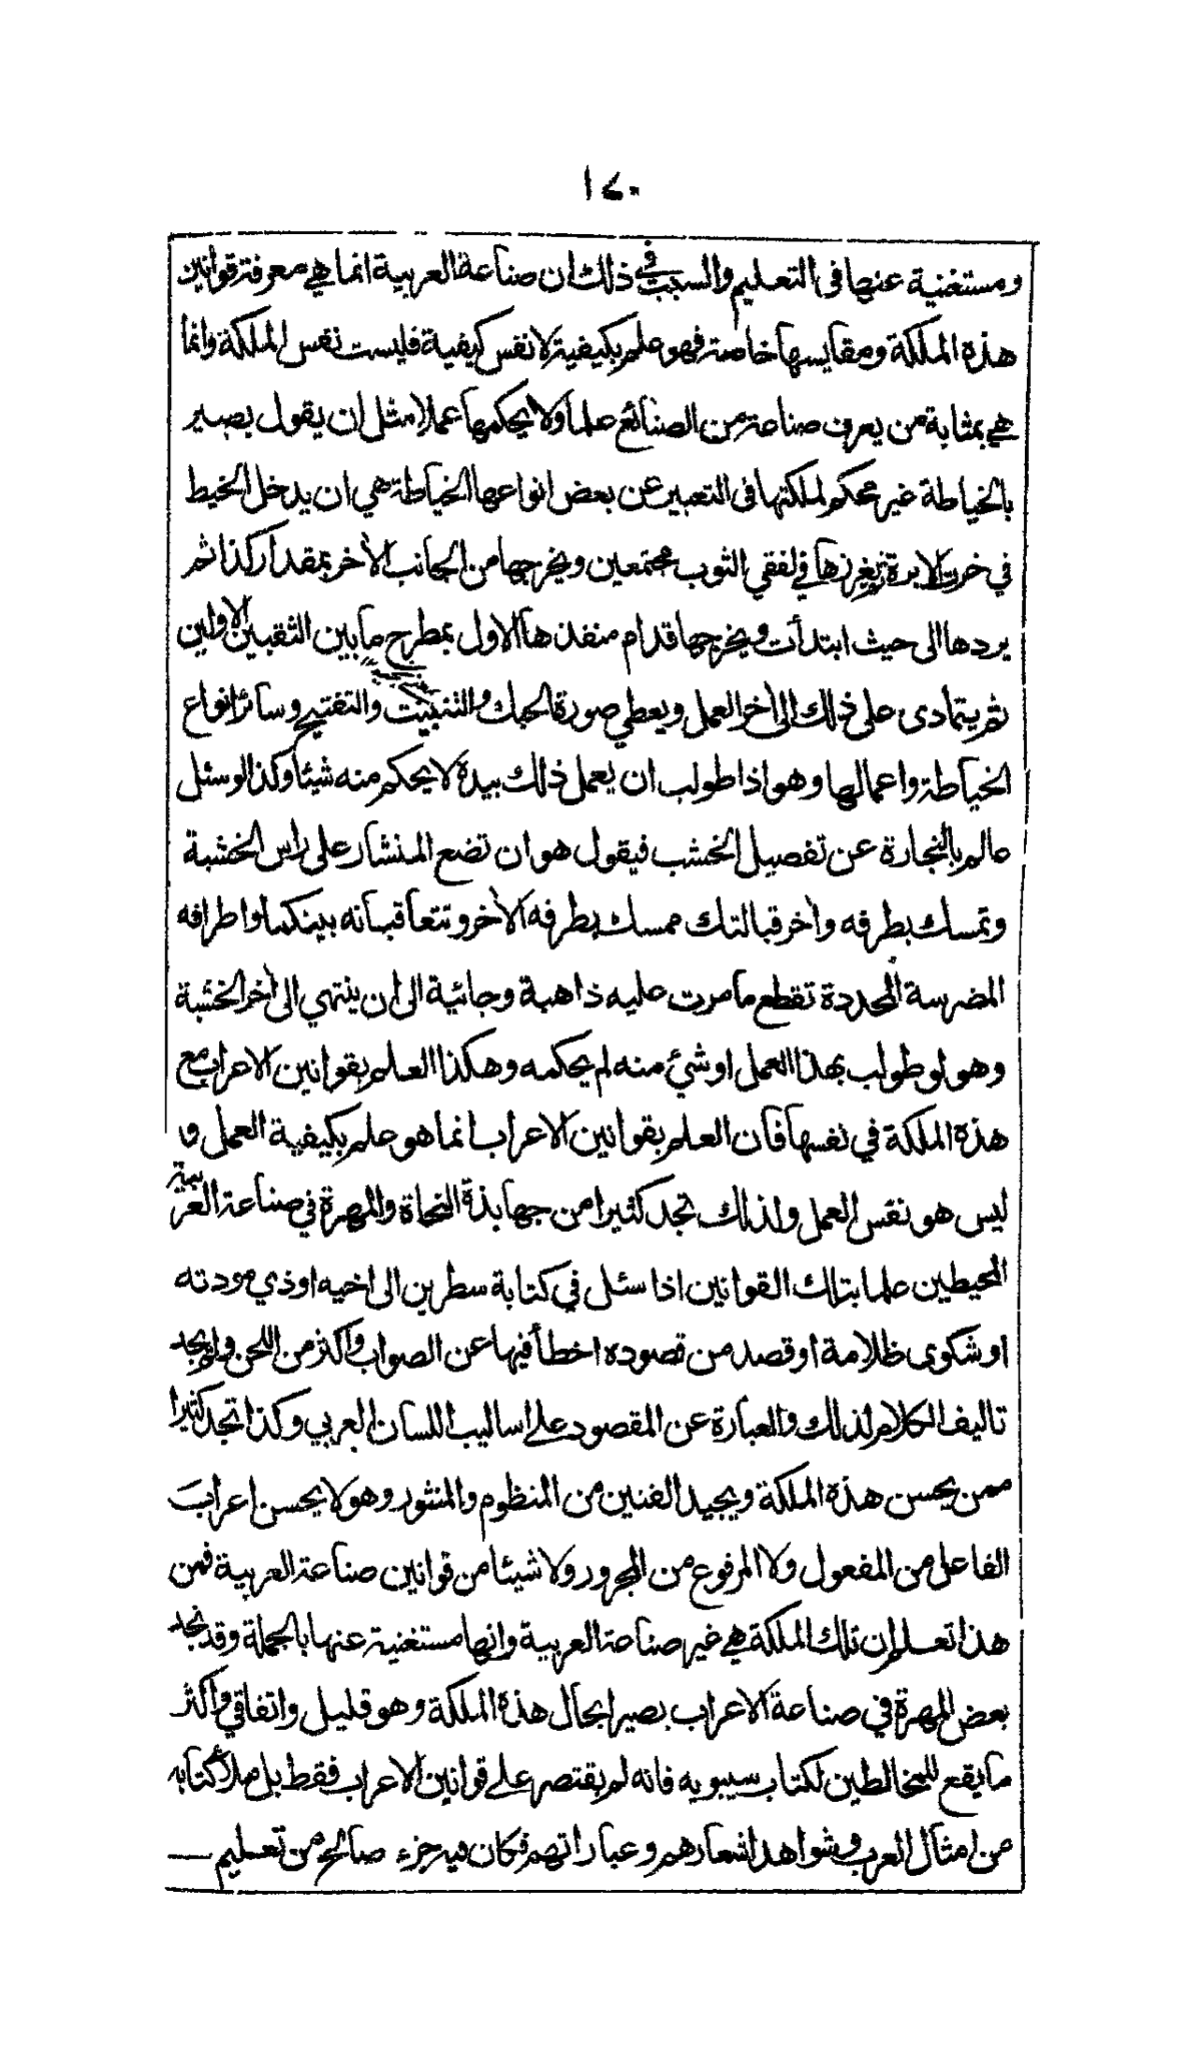 ١٧٠
ومستغنية عنها فى التعليم والسبب فى ذلك ان صناعة العربية انما هي معرفة قوانين
هذه الملكة ومقايسها خاصة فهو علم بكيفية لا نفس كيفية فليست نفس الملكة وانما
هي بمثابة من يعرف صناعة من الصنائع علما ولا يحكمها عملا مثل ان يقول بصير
بالخياطة غير محكم لملكتها فى التعبير عن بعض انواعها الخياطة هي ان يدخل الخيط
في خرت الابرة ثم يغرزها في لفقي الثوب مجتمعين ويخرجها من الجانب الأخر بمقدار كذا ثم
يردها الى حيث ابتدأت ويخرجها قدام منفذها الاول بمطرح ما بين الثقبين الاولين
ثم يتمادى على ذلك الى أخر العمل ويعطي صورة الحبك والتنبيت والتفتيح وسائر انواع
الخياطة واعمالها وهو اذا طولب ان يعمل ذلك بيده لا يحكم منه شيئا وكذا لو سئل
عالم بالنجارة عن تفصيل الخشب فيقول هو ان تضع المنشار على راس الخشبة
وتمسك بطرفه وأخر قبالتك ممسك بطرفه الأخر وتتعاقبانه بينكما واطرافه
المضرسة المحددة تقطع ما مرت عليه ذاهبة وجائية الى ان ينتهي الى أخر الخشبة
وهو لو طولب بهذا العمل او شيء منه لم يحكمه وهكذا العلم بقوانين الاعراب مع
هذه الملكة في نفسها فان العلم بقوانين الاعراب انما هو علم بكيفية العمل و
ليس هو نفس العمل ولذلك تجد كثيرا من جهابذة النحاة والمهرة في صناعة العربية
المحيطين علما بتلك القوانين اذا سئل في كتابة سطرين الى اخيه او ذي مودته
او شكوى ظلامة او قصد من قصوده اخطأ فيها عن الصواب واكثر من اللحن ولم يجد
تاليف الكلام لذلك والعبارة عن المقصود على اساليب اللسان العربي وكذا تجد كثيرا
ممن يحسن هذه الملكة ويجيد الفنين من المنظوم والمنثور وهو لا يحسن اعراب
الفاعل من المفعول ولا المرفوع من المجرور ولا شيئا من قوانين صناعة العربية فمن
هذا تعلم ان تلك الملكة هي غير صناعة العربية وانها مستغنية عنها بالجملة وقد نجد
بعض المهرة في صناعة الاعراب بصيرا بحال هذه الملكة وهو قليل واتفاقي واكثر
ما يقع للمخالطين لكتاب سيبويه فانه لم يقتصر على قوانين الاعراب فقط بل ملأ كتابه
من امثال العرب وشواهد اشعارهم وعباراتهم فكان فيه جزء صالح من تعليم